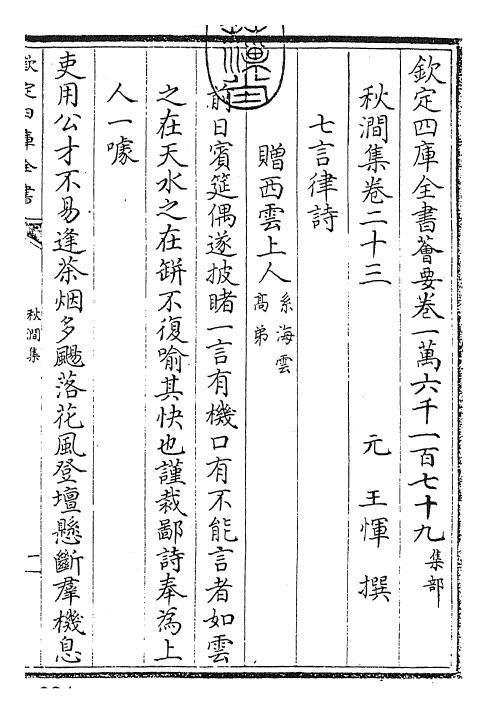 欽定四庫全書薈要卷一萬六千一百七十九集部
秋澗集卷二十三
元 王惲 撰
七言律詩
贈西雲上人系海雲高弟
前日賓筵偶遂披睹一言有機口有不能言者如雲
之在天水之在缾不復喻其快也謹裁鄙詩奉為上
人一噱
吏用公才不易逢茶烟多颺落花風登壇懸斷羣機息
欽定四庫全書
秋澗集
一